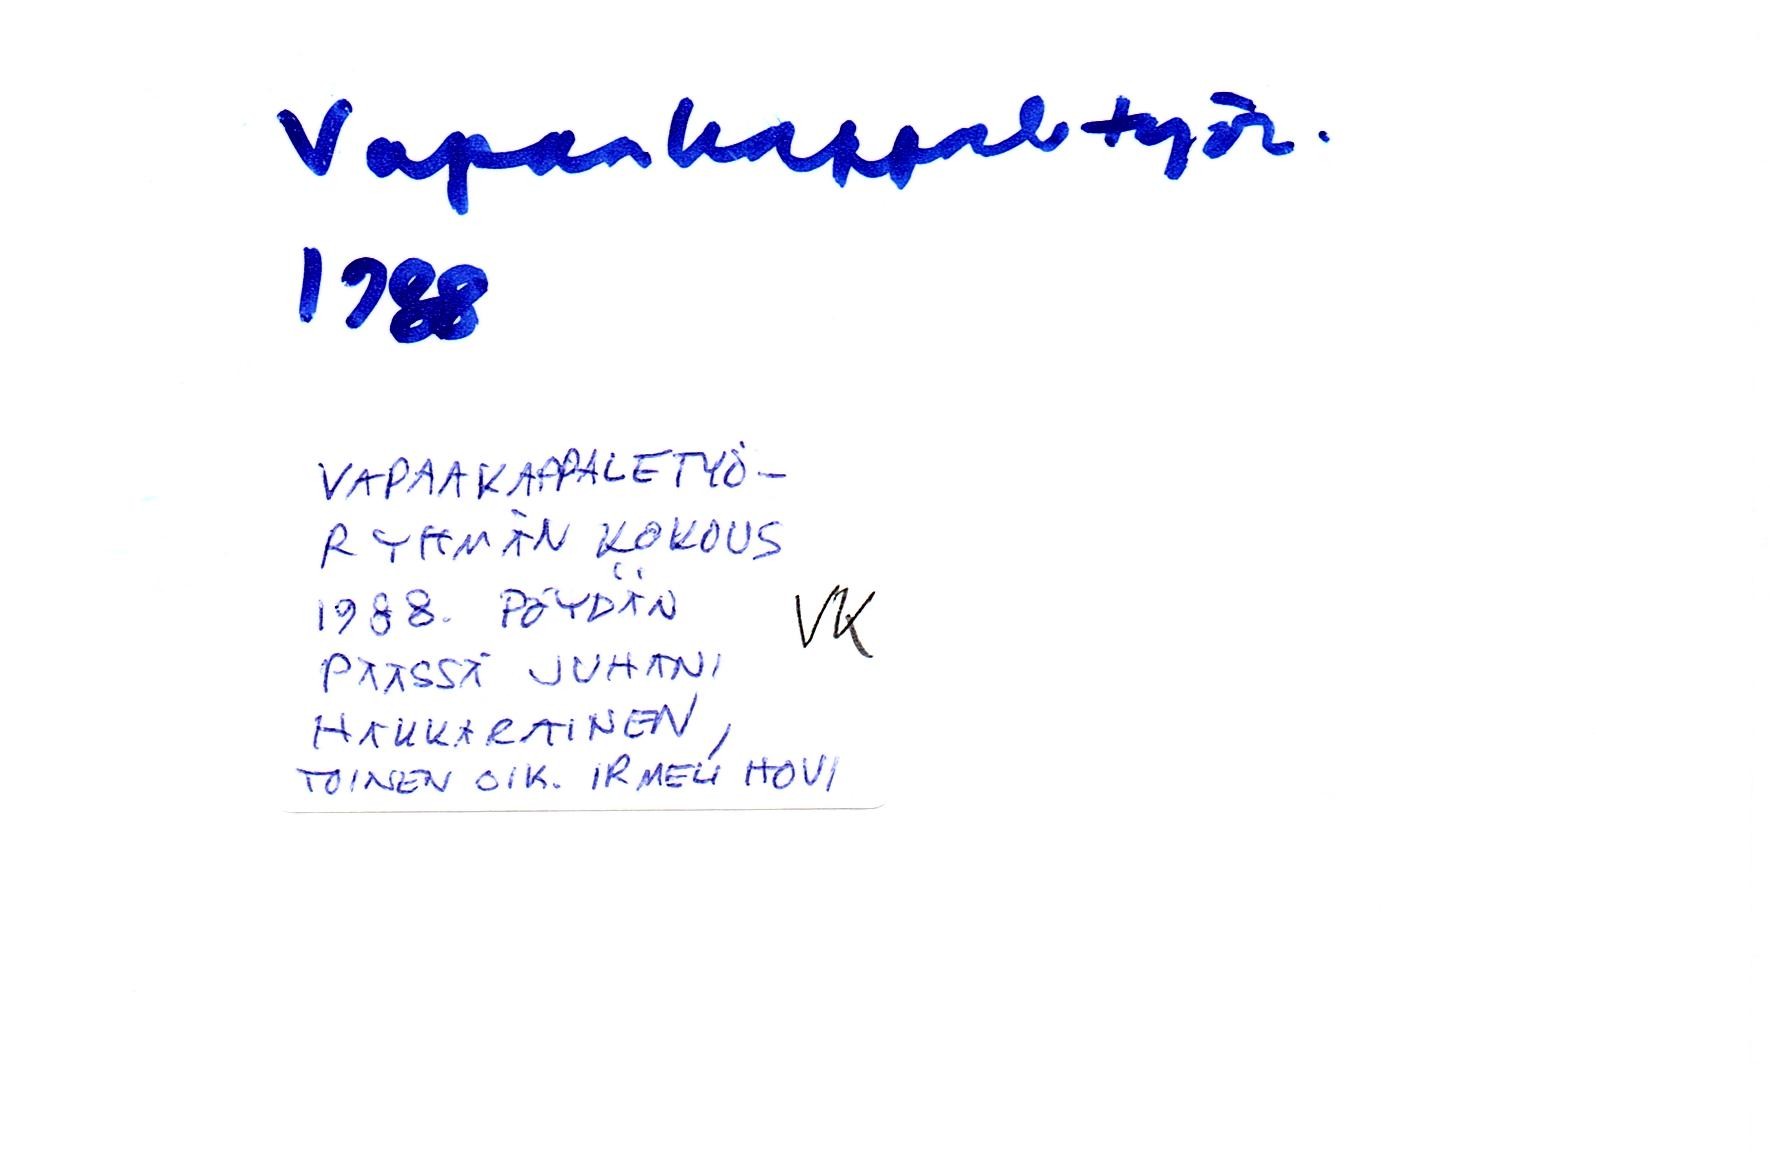 Vapaakappaletyör.
1988
VAPAAKAPPALETYÖ-
RYHMÄN KOKOUS
1988. PÖYDÄN
PÄÄSSÄ JUHANI
HAKKARAINEN,
TOINEN OIK. IRMELI HOVI
VK